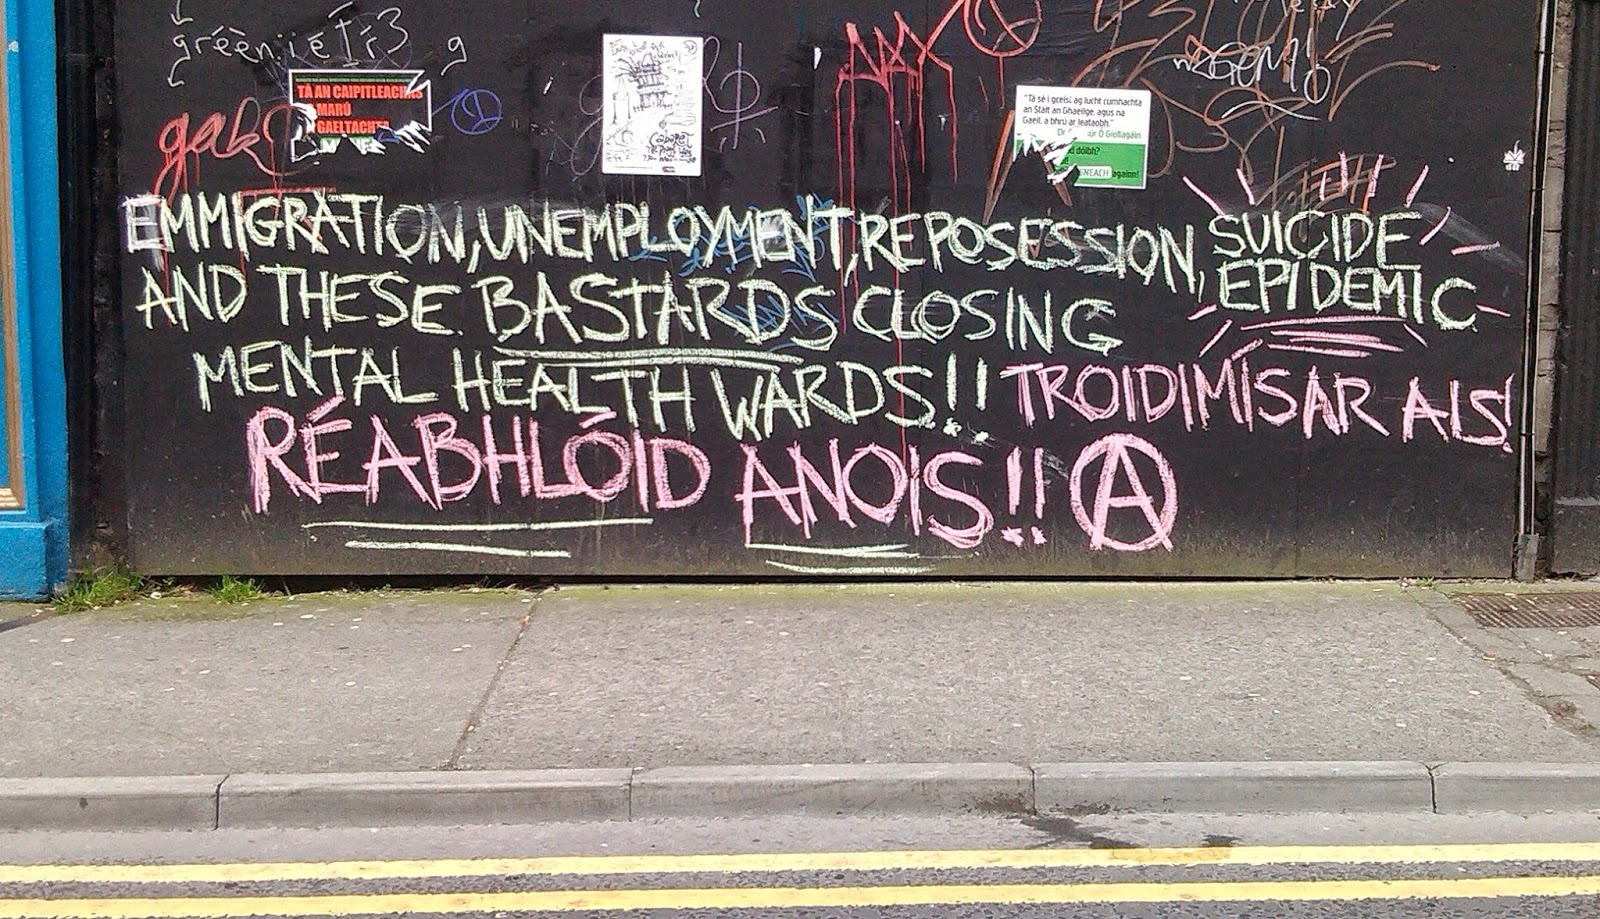 gréén
TÁ AN CAIPITLEACHAS
MARÚ
GAELTACHTA
Cabaret
"Tá sé i gceist ag lucht cumhachta
an Stáit an Ghaeilge, agus na
Gaeil, a bhrú ar leataobh."
Ó Giollagáin
dóibh?
againn!
EMMIGRATION, UNEMPLOYMENT, REPOSESSION, SUICIDE
EPIDEMIC
AND THESE BASTARDS CLOSING
MENTAL HEALTH WARDS!! TROIDIMÍS AR AIS!
RÉABHLÓID ANOIS!! Ⓐ